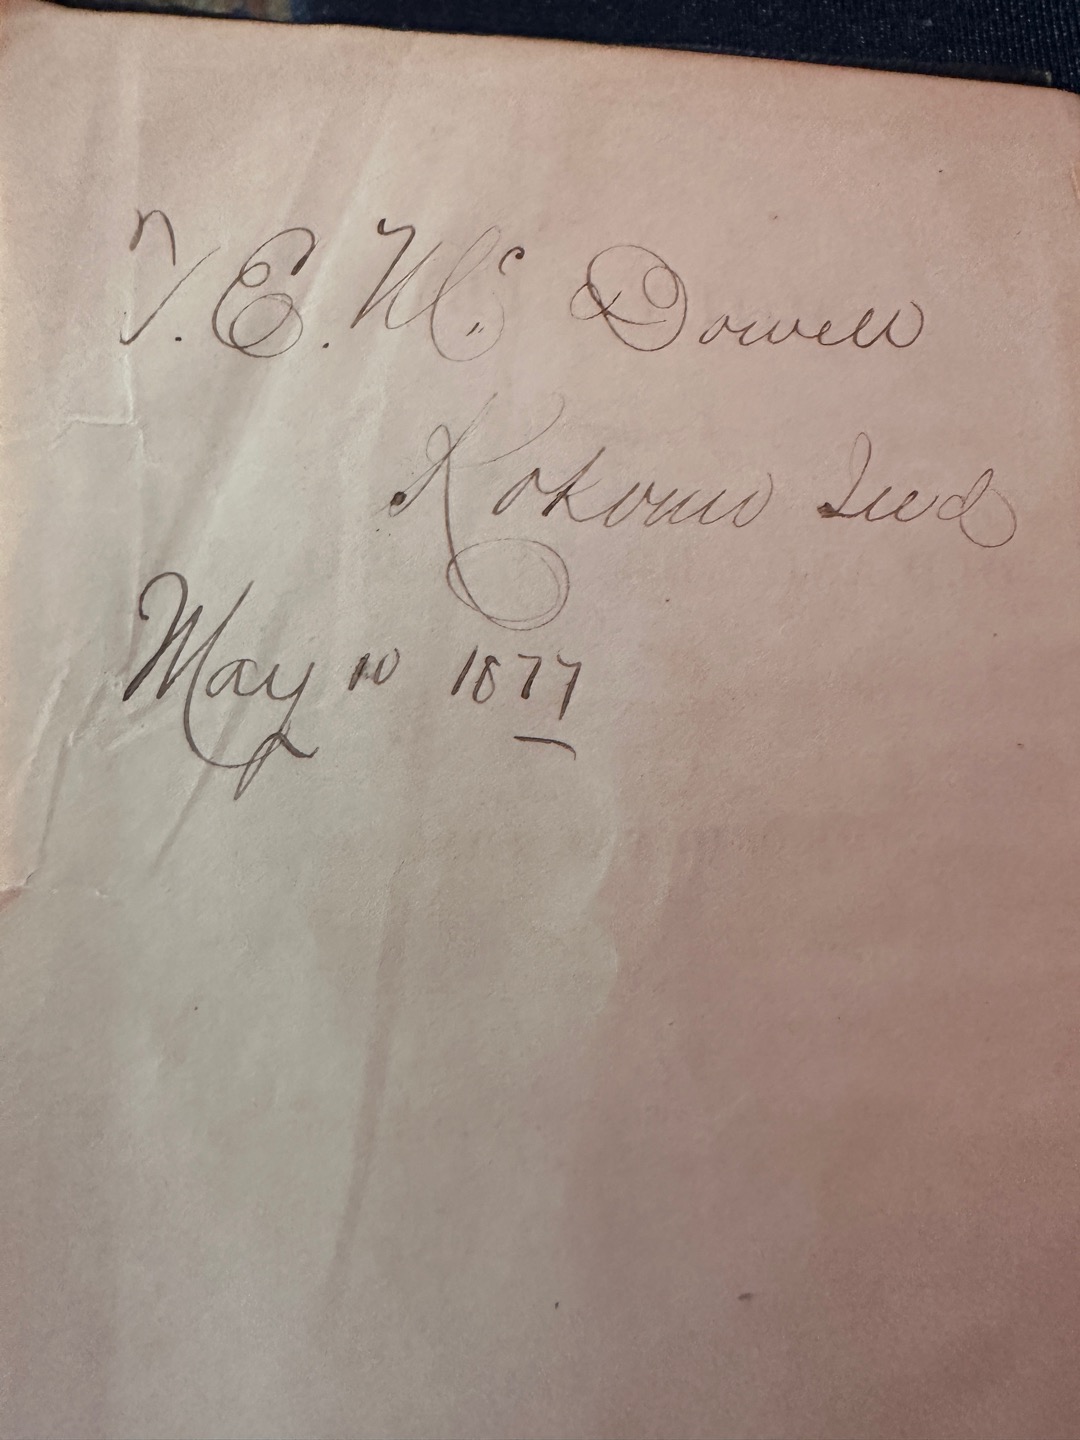 T. E. Mc Dowell
Kokomo Ind
May 10 1877